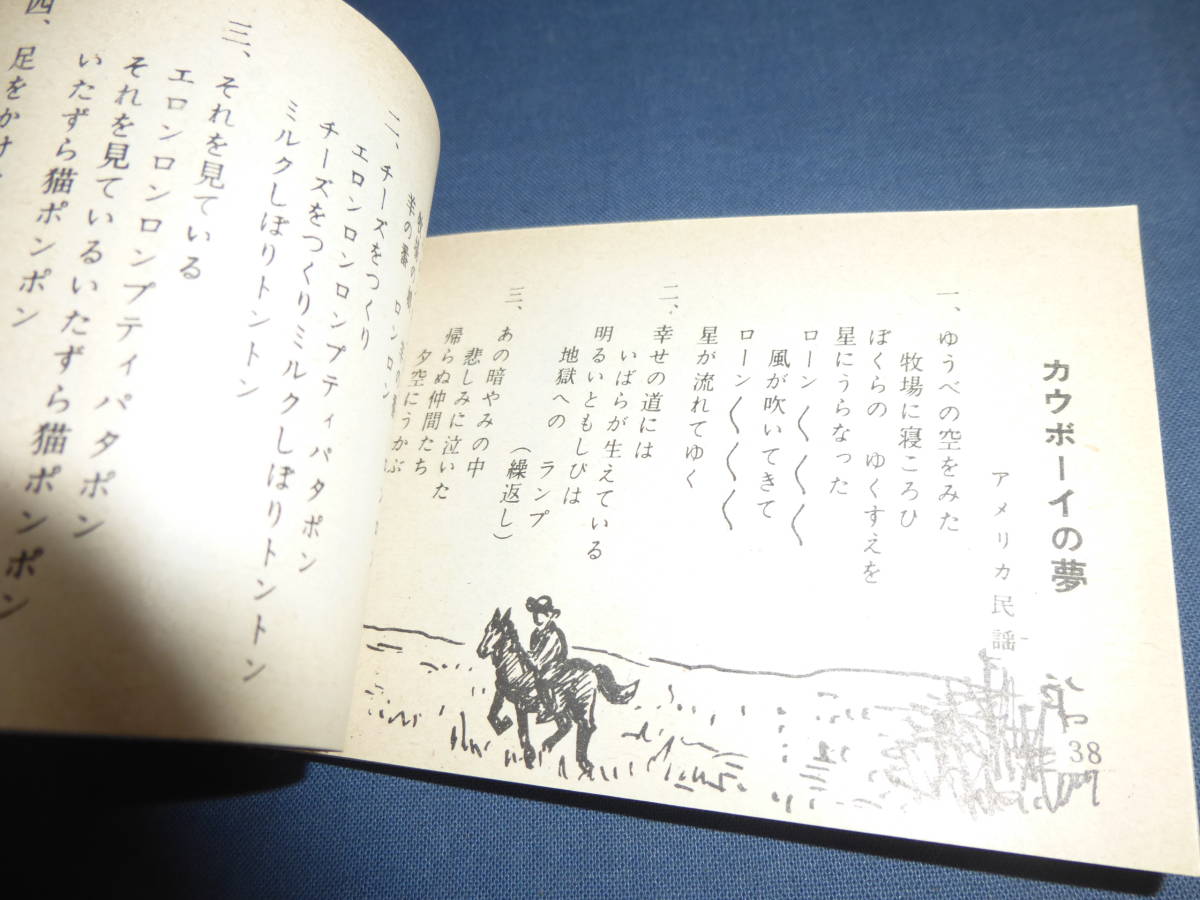 カウボーイの夢
アメリカ民謡
38
一、ゆうべの空をみた
牧場に寝ころひ
ぼくらの　ゆくすえを
星にうらなった
ローン〱〱〱
風が吹いてきて
ローン〱〱〱
星が流れてゆく
二、幸せの道には
いばらが生えている
明るいともしびは
地獄への　ランプ
（繰返し）
三、あの暗やみの中
悲しみに泣いた
帰らぬ仲間たち
夕空にうかぶ
羊の番　ロンロン
二、チーズをつくり
エロンロンロンプティパタポン
チーズをつくりミルクしぼりトントン
ミルクしぼりトントン
三、それを見ている
エロンロンロンプティパタポン
それを見ているいたずら猫ポンポン
いたずら猫ポンポン
四、足をかけ